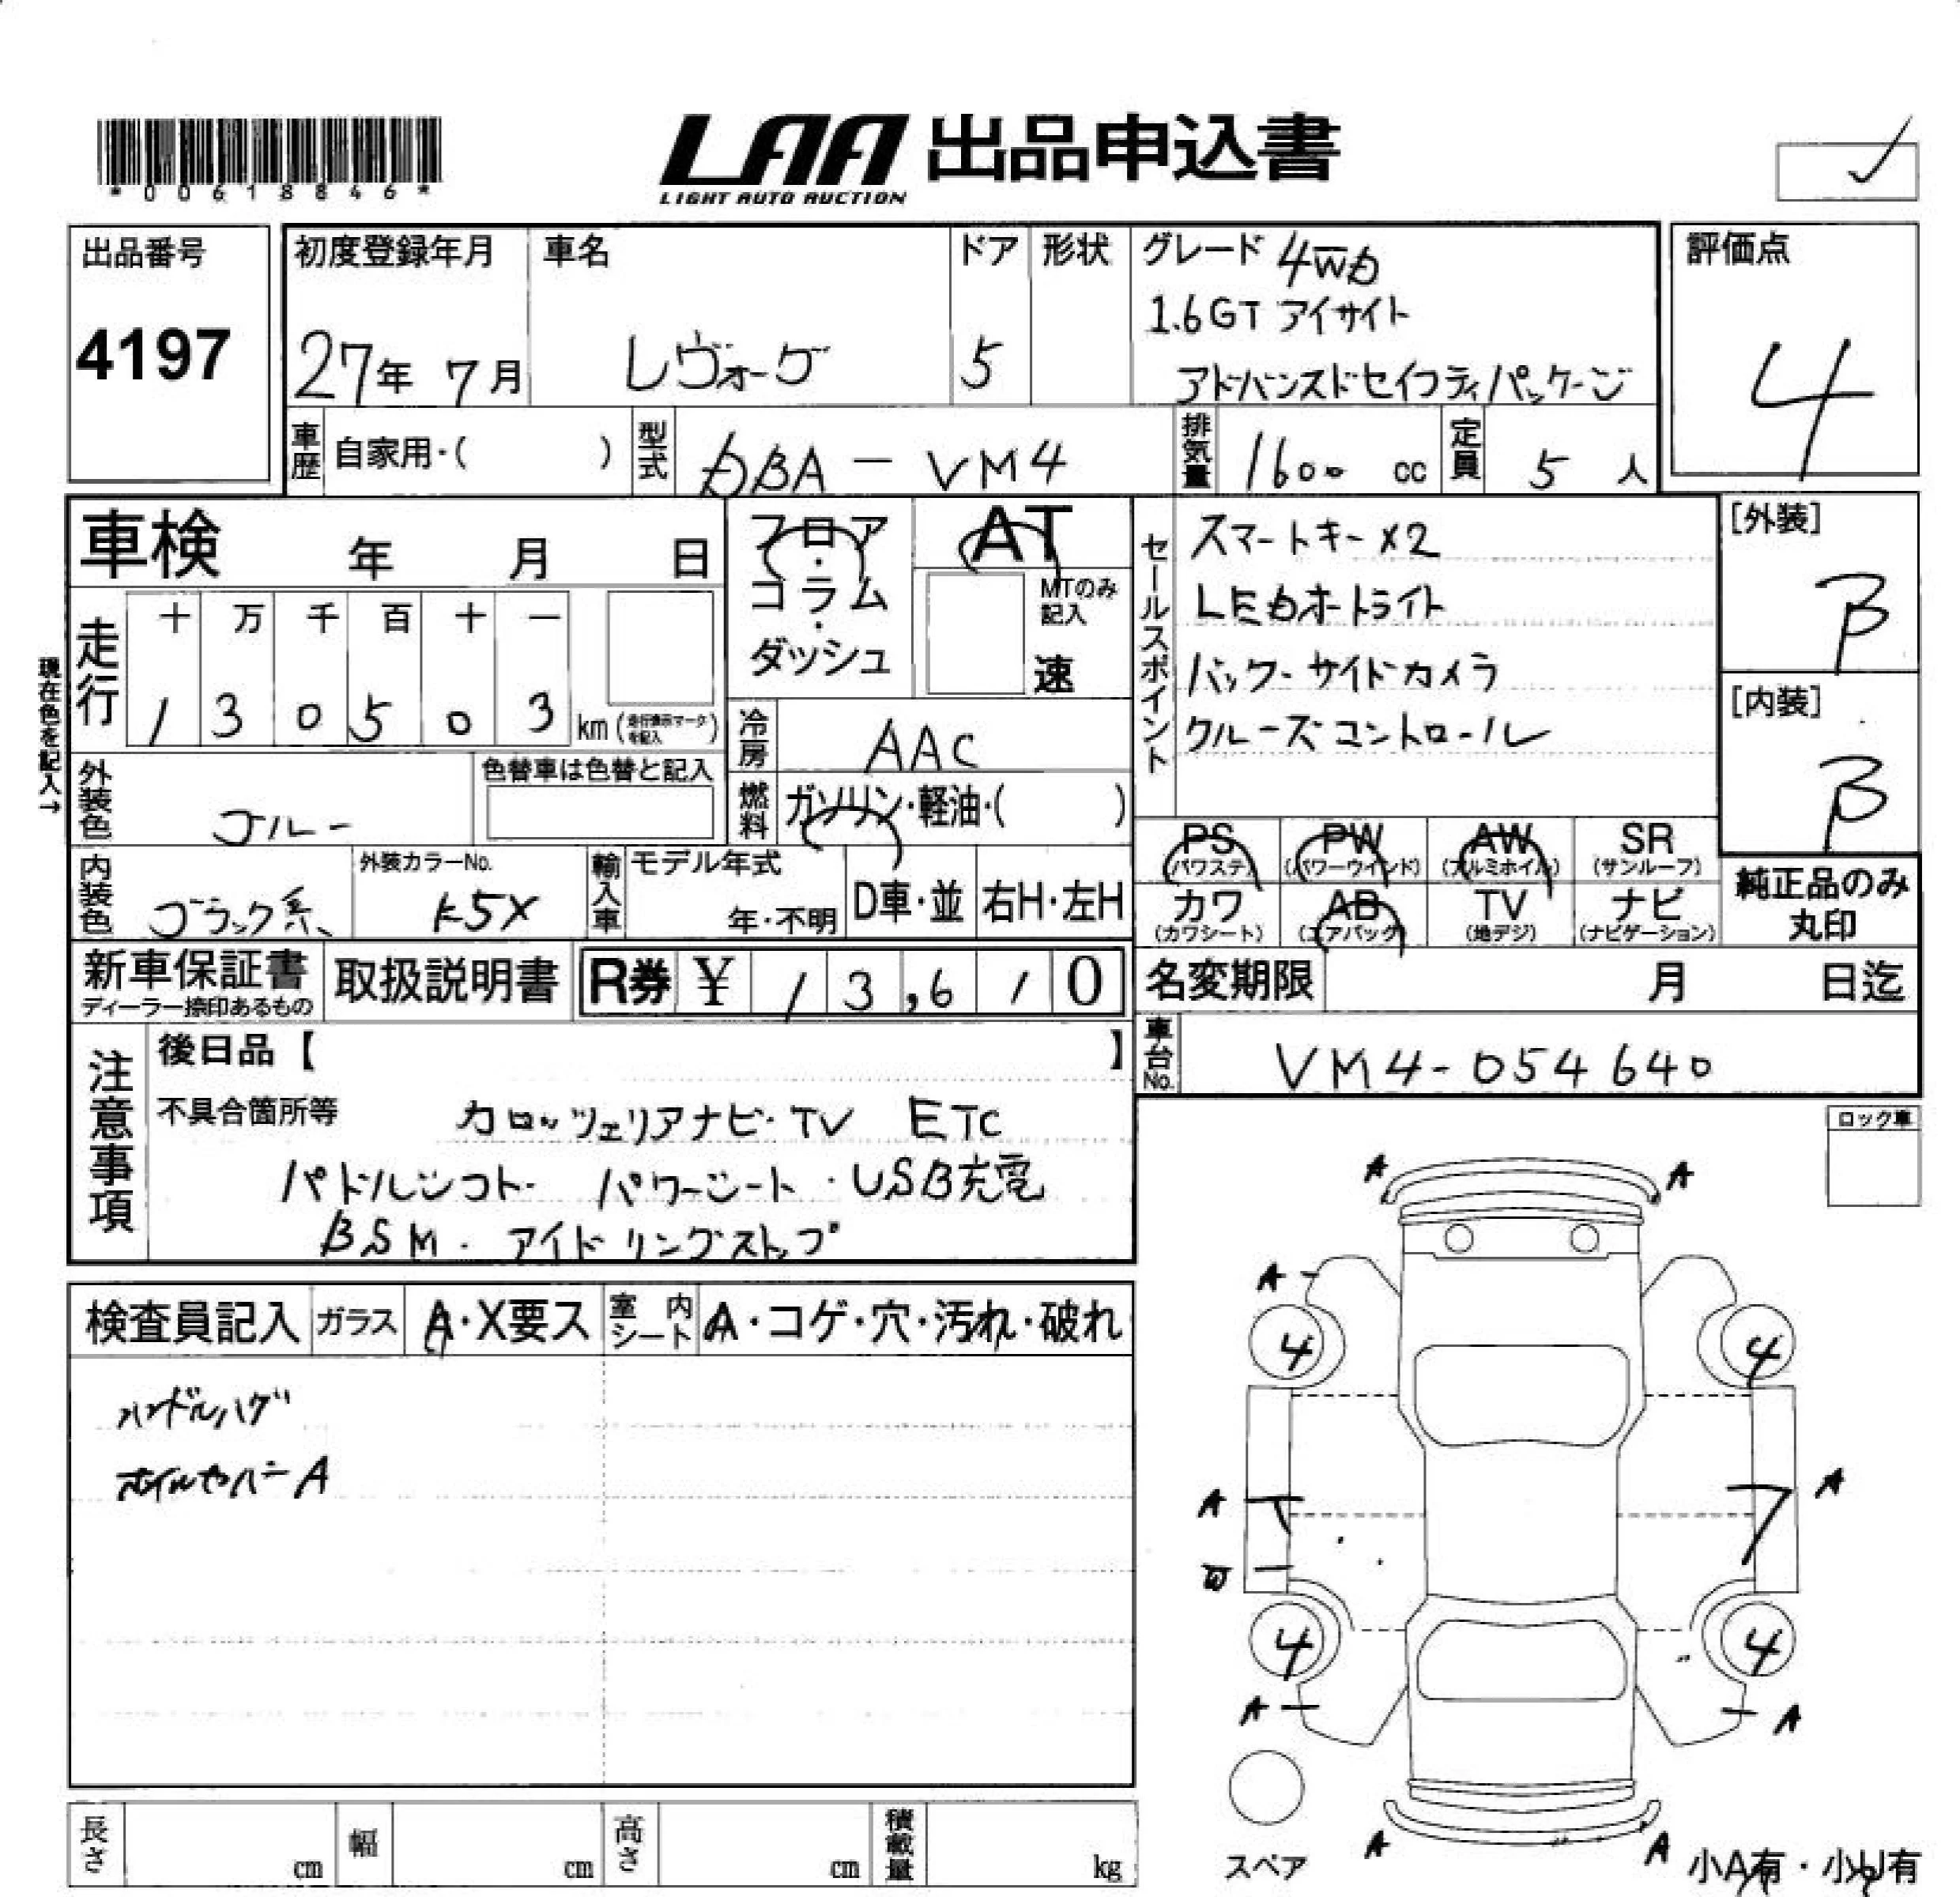 *00618846*
LAA 出品申込書
LIGHT AUTO AUCTION
出品番号
4197
初度登録年月
27年 7月
車名
レヴォーグ
ドア
5
形状
グレード 4WD
1.6GT アイサイト
アドバンスドセイフティパッケージ
評価点
4
車歴
自家用・( )
型式
DBA-VM4
排気量
1600 cc
定員
5 人
車検 年 月 日
フロア・コラム・ダッシュ
AT
MTのみ記入
速
セールスポイント
スマートキー×2
LEDオートライト
バック・サイドカメラ
クルーズコントロール
[外装]
B
[内装]
B
現在色を記入→
走行
十 万 千 百 十 一
1 3 0 5 0 3 km (走行表示マークを記入)
冷房
AAC
外装色
ブルー
色替車は色替と記入
燃料
ガソリン・軽油・( )
PS (パワステ)
PW (パワーウインド)
AW (アルミホイル)
SR (サンルーフ)
内装色
ブラック系
外装カラーNo.
K5X
輸入車
モデル年式
年・不明
D車・並
右H・左H
カワ (カワシート)
AB (エアバック)
TV (地デジ)
ナビ (ナビゲーション)
純正品のみ丸印
新車保証書
ディーラー捺印あるもの
取扱説明書
R券 ¥ 1 3,6 1 0
名変期限 月 日迄
車台No.
VM4-054640
注意事項
後日品【 】
不具合箇所等
カロッツェリアナビ・TV ETC
パドルシフト・ パワーシート ・USB充電
BSM・ アイドリングストップ
ロック車
検査員記入
ガラス
A・X要ス
室内シート
A・コゲ・穴・汚れ・破れ
ハンドルハゲ
ホイルカバーA
A A
A
4 4
A A
4 4
A A
A A
スペア
小A有・小U有
長さ cm
幅 cm
高さ cm
積載量 kg